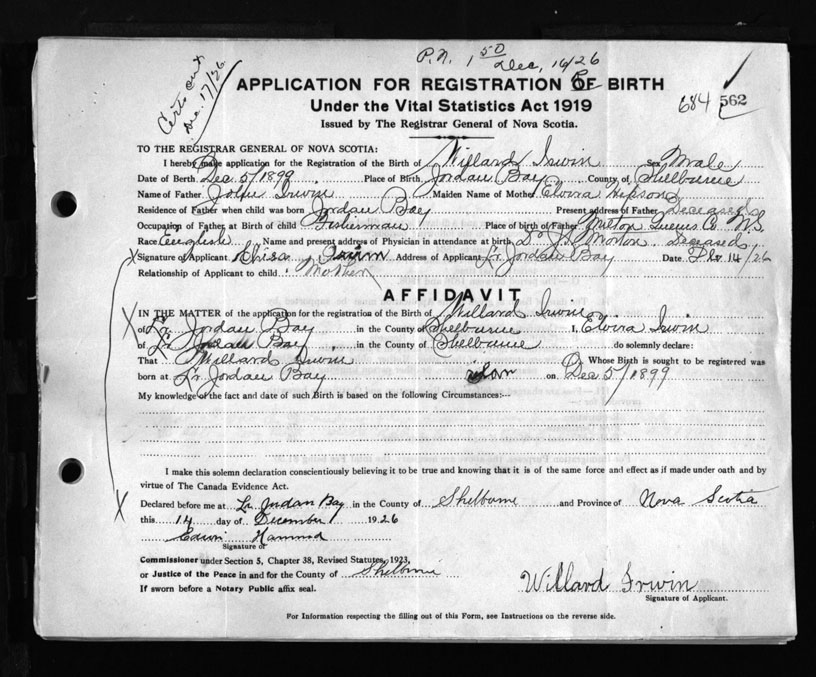 P.N. 1 50
Dec, 16/26
Certs out
Dec. 17/26
APPLICATION FOR REGISTRATION OF BIRTH
684 562
Under the Vital Statistics Act 1919
Issued by The Registrar General of Nova Scotia.
TO THE REGISTRAR GENERAL OF NOVA SCOTIA:
I hereby make application for the Registration of the Birth of Willard Irwin Sex Male
Date of Birth Dec 5/1899 Place of Birth Jordan Bay County of Shelburne
Name of Father Irwin Maiden Name of Mother Elvira Hipson
Residence of Father when child was born Jordan Bay Present address of Father Deceased
Occupation of Father at Birth of child Fisherman Place of birth of Father Milton Queens Co. N.S.
Race English Name and present address of Physician in attendance at birth Dr Morton Deceased
Signature of Applicant Irwin Address of Applicant Lr Jordan Bay Date 14/26
Relationship of Applicant to child Mother
AFFIDAVIT
IN THE MATTER of the application for the registration of the Birth of Willard Irwin
of Lr Jordan Bay in the County of Shelburne I, Elvira Irwin
of Lr Jordan Bay in the County of Shelburne do solemnly declare:
That Willard Irwin Whose Birth is sought to be registered was
born at Lr Jordan Bay on Dec 5/1899
My knowledge of the fact and date of such Birth is based on the following Circumstances:--
I make this solemn declaration conscientiously believing it to be true and knowing that it is of the same force and effect as if made under oath and by
virtue of The Canada Evidence Act.
Declared before me at Lr Jordan Bay in the County of Shelburne and Province of Nova Scotia
this 14 day of December 1926
Edwin Hammond
Signature of
Commissioner under Section 5, Chapter 38, Revised Statutes, 1923,
or Justice of the Peace in and for the County of Shelburne
If sworn before a Notary Public affix seal.
Willard Irwin
Signature of Applicant.
For Information respecting the filling out of this Form, see Instructions on the reverse side.